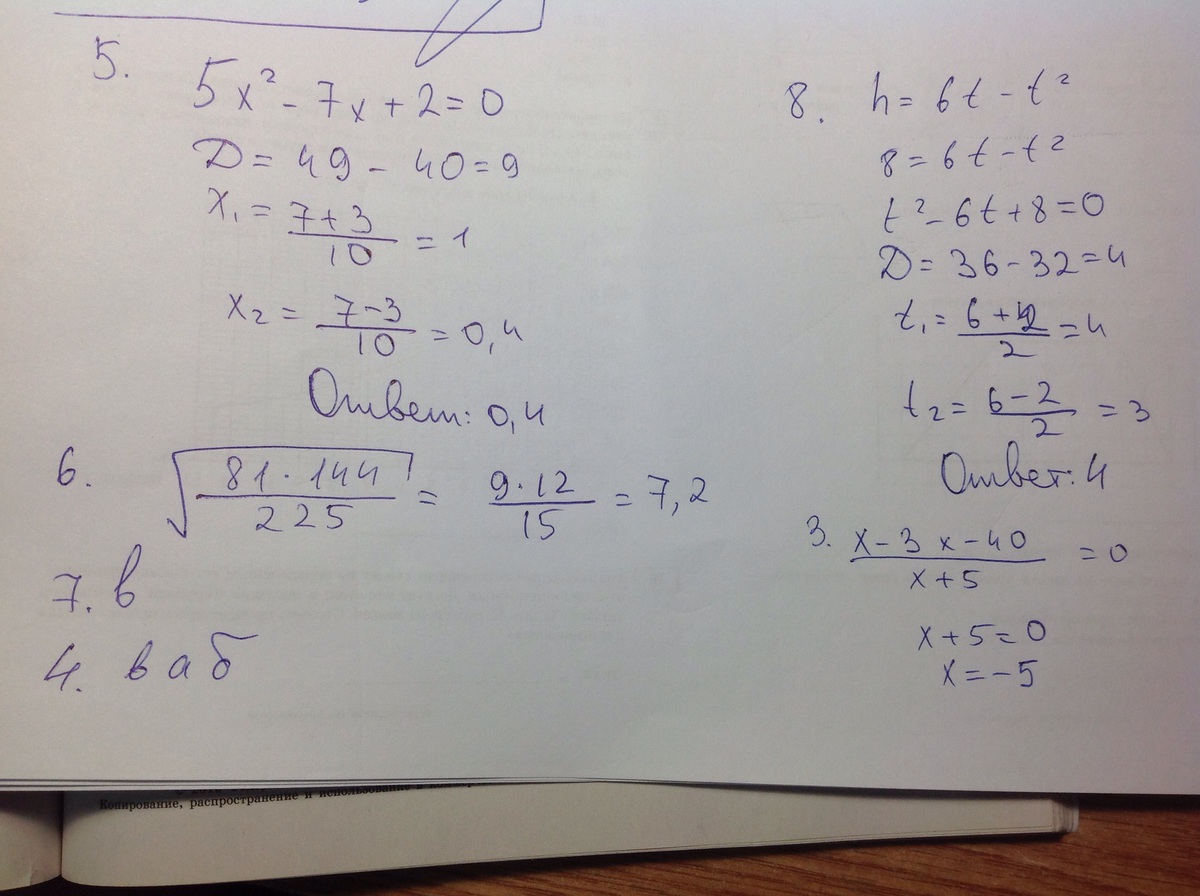 5.
5x² - 7x + 2 = 0
D = 49 - 40 = 9
x₁ = (7+3)/10 = 1
x₂ = (7-3)/10 = 0,4
Ответ: 0,4
6. √(81·144/225) = 9·12/15 = 7,2
7. в
4. в а б
8. h = 6t - t²
8 = 6t - t²
t² - 6t + 8 = 0
D = 36 - 32 = 4
t₁ = (6+2)/2 = 4
t₂ = (6-2)/2 = 3
Ответ: 4
3. (x - 3 x - 40)/(x + 5) = 0
x + 5 = 0
x = -5
Копирование, распространение и использование в